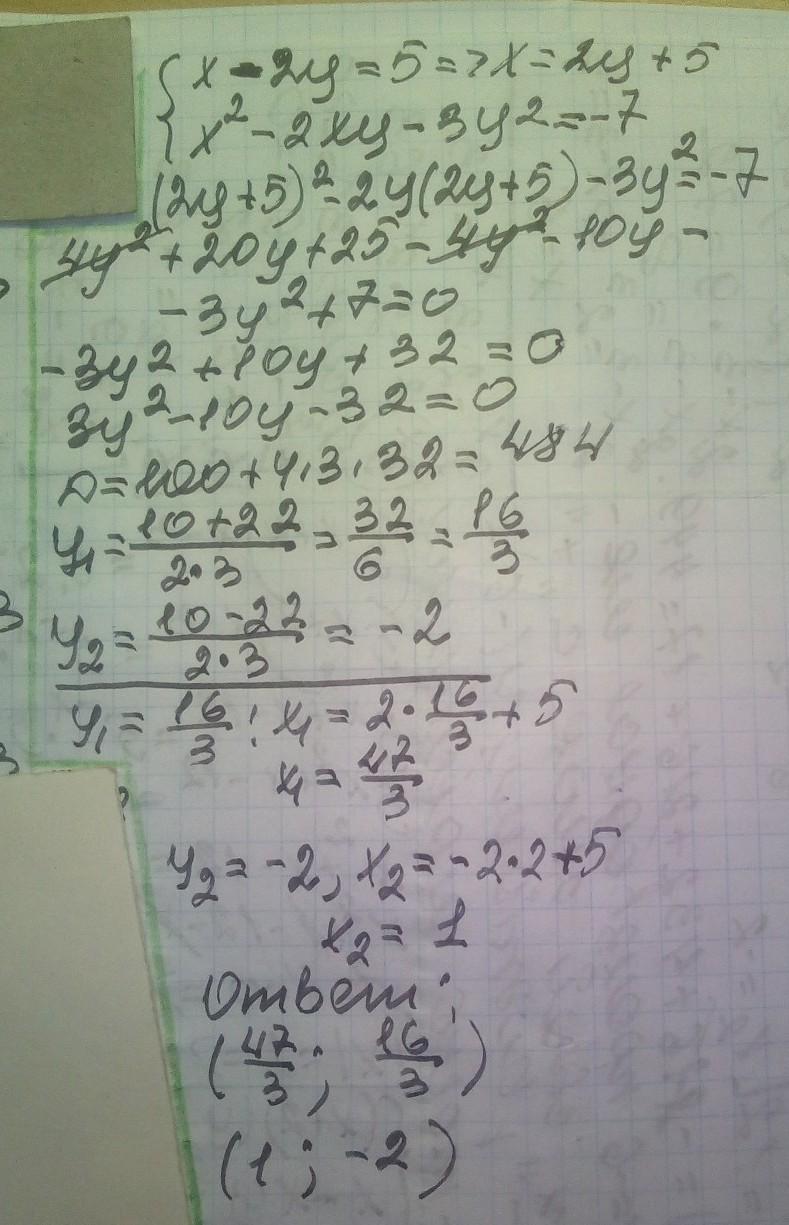 { x - 2y = 5 => x = 2y + 5
x² - 2xy - 3y² = -7
(2y+5)² - 2y(2y+5) - 3y² = -7
4y² + 20y + 25 - 4y² - 10y -
- 3y² + 7 = 0
-3y² + 10y + 32 = 0
3y² - 10y - 32 = 0
D = 100 + 4·3·32 = 484
y₁ = (10+22)/(2·3) = 32/6 = 16/3
y₂ = (10-22)/(2·3) = -2
y₁ = 16/3; x₁ = 2·16/3 + 5
x₁ = 47/3
y₂ = -2, x₂ = -2·2+5
x₂ = 1
Ответ:
(47/3; 16/3)
(1; -2)